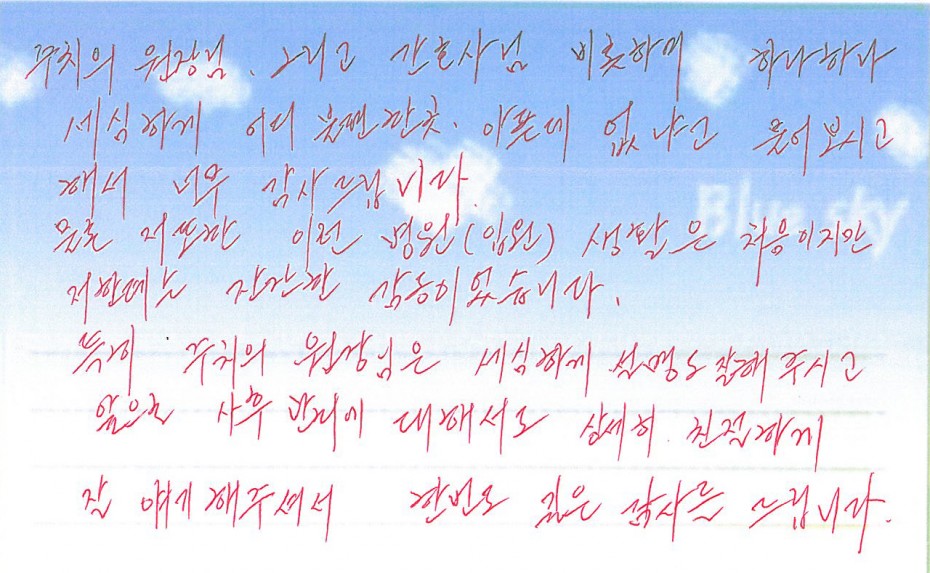 주치의 원장님, 그리고 간호사님 비롯하여 하나하나
세심하게 어디 불편한곳, 아픈데 없냐고 물어보시고
해서 너무 감사드립니다.
Blue sky
물론 저또한 이런 병원(입원) 생활은 처음이지만
저한테는 잔잔한 감동이었습니다.
특히 주치의 원장님은 세심하게 설명도 잘해주시고
앞으로 사후 관리에 대해서도 상세히 친절하게
잘 얘기해주셔서 한번도 깊은 감사를 드립니다.